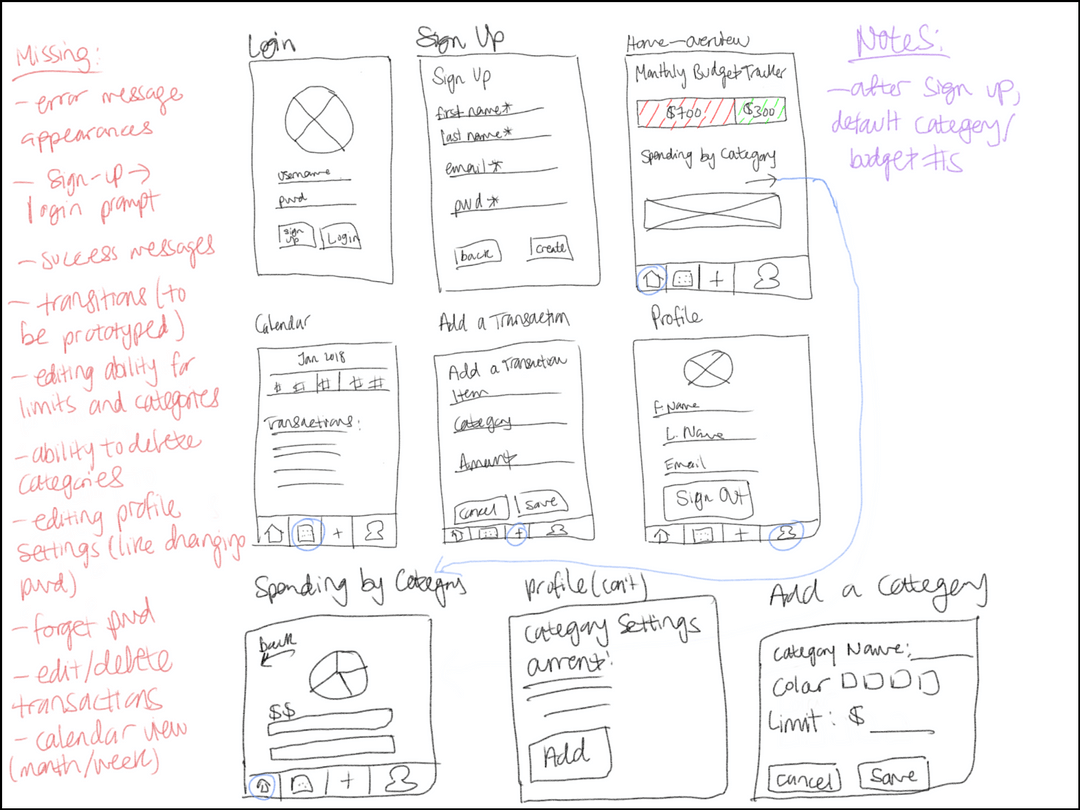 Missing:
- error message
appearances
- Sign-up →
login prompt
- success messages
- transitions (to
be prototyped)
- editing ability for
limits and categories
- ability to delete
categories
- editing profile
settings (like changing
pwd)
- forget pwd
- edit/delete
transactions
- calendar view
(month/week)
Login
username
pwd
sign
up
Login
Sign Up
Sign Up
first name*
last name*
email*
pwd*
back
create
Home-overview
Monthly Budget Tracker
$700
$300
Spending by Category
→
+
Notes:
- after sign up,
default category/
budget #s
Calendar
Jan 2018
# # # # #
Transactions:
+
Add a Transaction
Add a Transaction
Item
Category
Amount
Cancel
Save
+
Profile
F. Name
L. Name
Email
Sign Out
+
Spending by Category
back
←
$$
+
Profile (con't)
Category Settings
current:
Add
Add a Category
Category Name:
Color
Limit: $
Cancel
Save